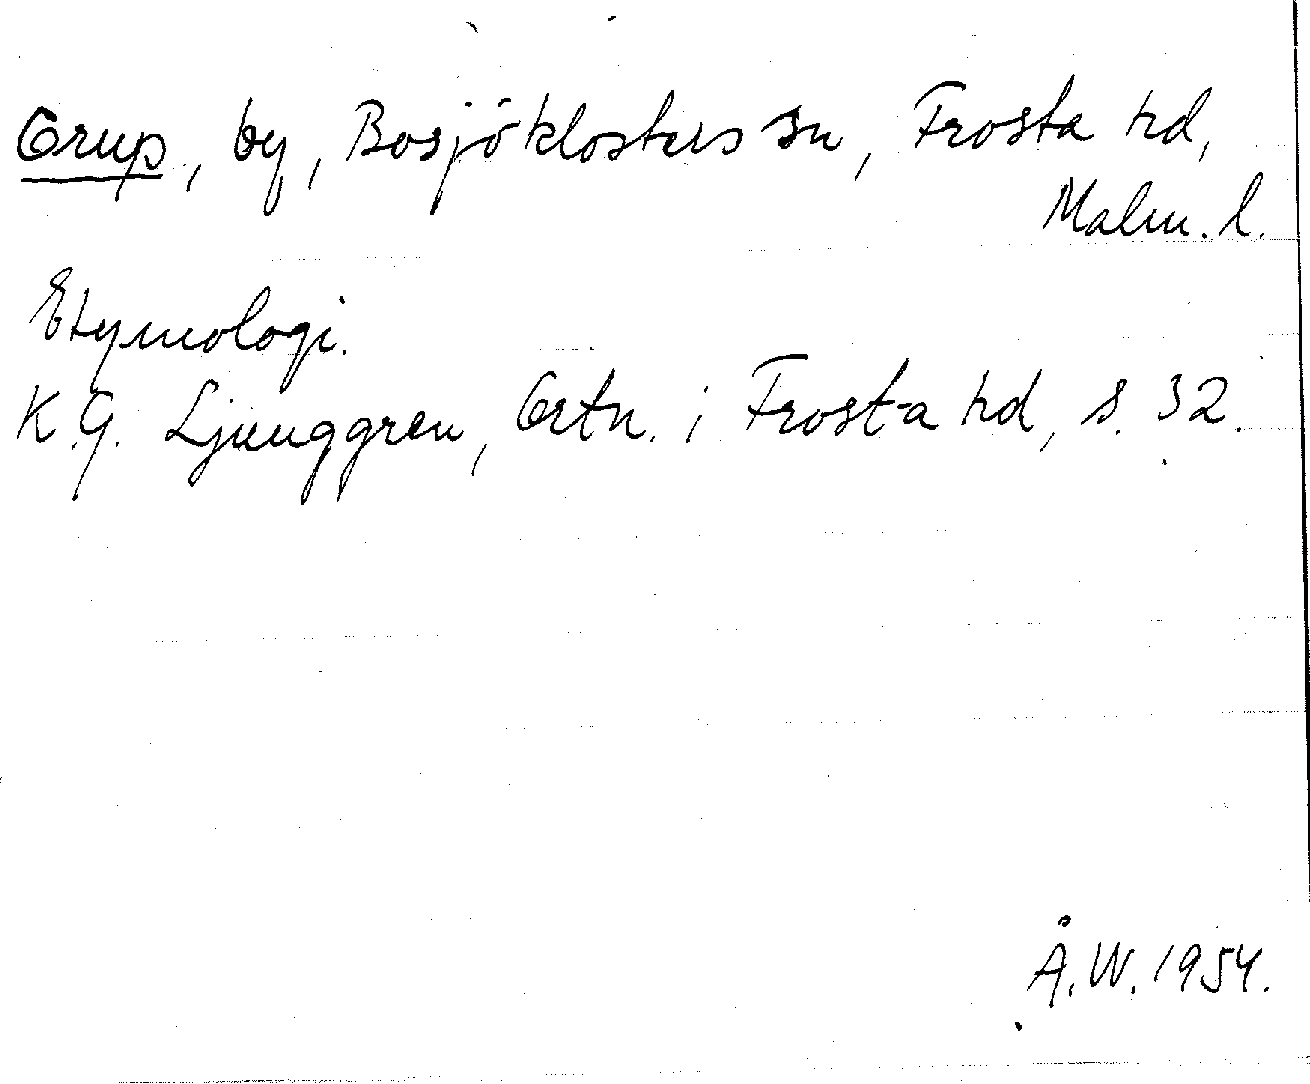 Orup, by, Bosjöklosters sn, Frosta hd,
Malm. l.
Etymologi.
K.G. Ljunggren, Ortn. i Frosta hd, s. 32.
Å.W. 1954.